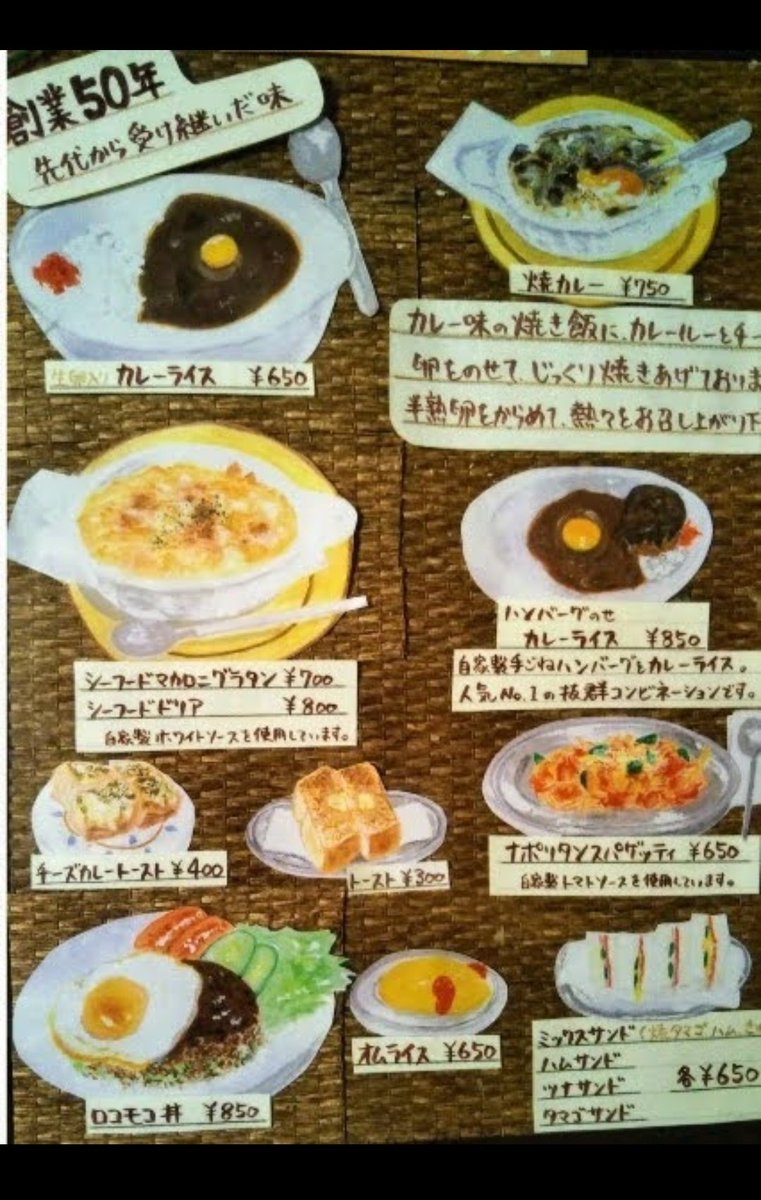 創業50年
先代から受け継いだ味
生卵入り カレーライス ¥650
焼カレー ¥750
カレー味の焼き飯に、カレールーとチー
卵をのせて、じっくり焼きあげておりま
半熟卵をからめて、熱々をお召し上がり下
シーフードマカロニグラタン ¥700
シーフードドリア ¥800
自家製ホワイトソースを使用しています。
ハンバーグのせ
カレーライス ¥850
自家製手ごねハンバーグとカレーライス。
人気No.1の抜群コンビネーションです。
チーズカレートースト ¥400
トースト ¥300
ナポリタンスパゲッティ ¥650
自家製トマトソースを使用しています。
ロコモコ丼 ¥850
オムライス ¥650
ミックスサンド(焼タマゴ、ハム、
ハムサンド
ツナサンド 各¥650
タマゴサンド